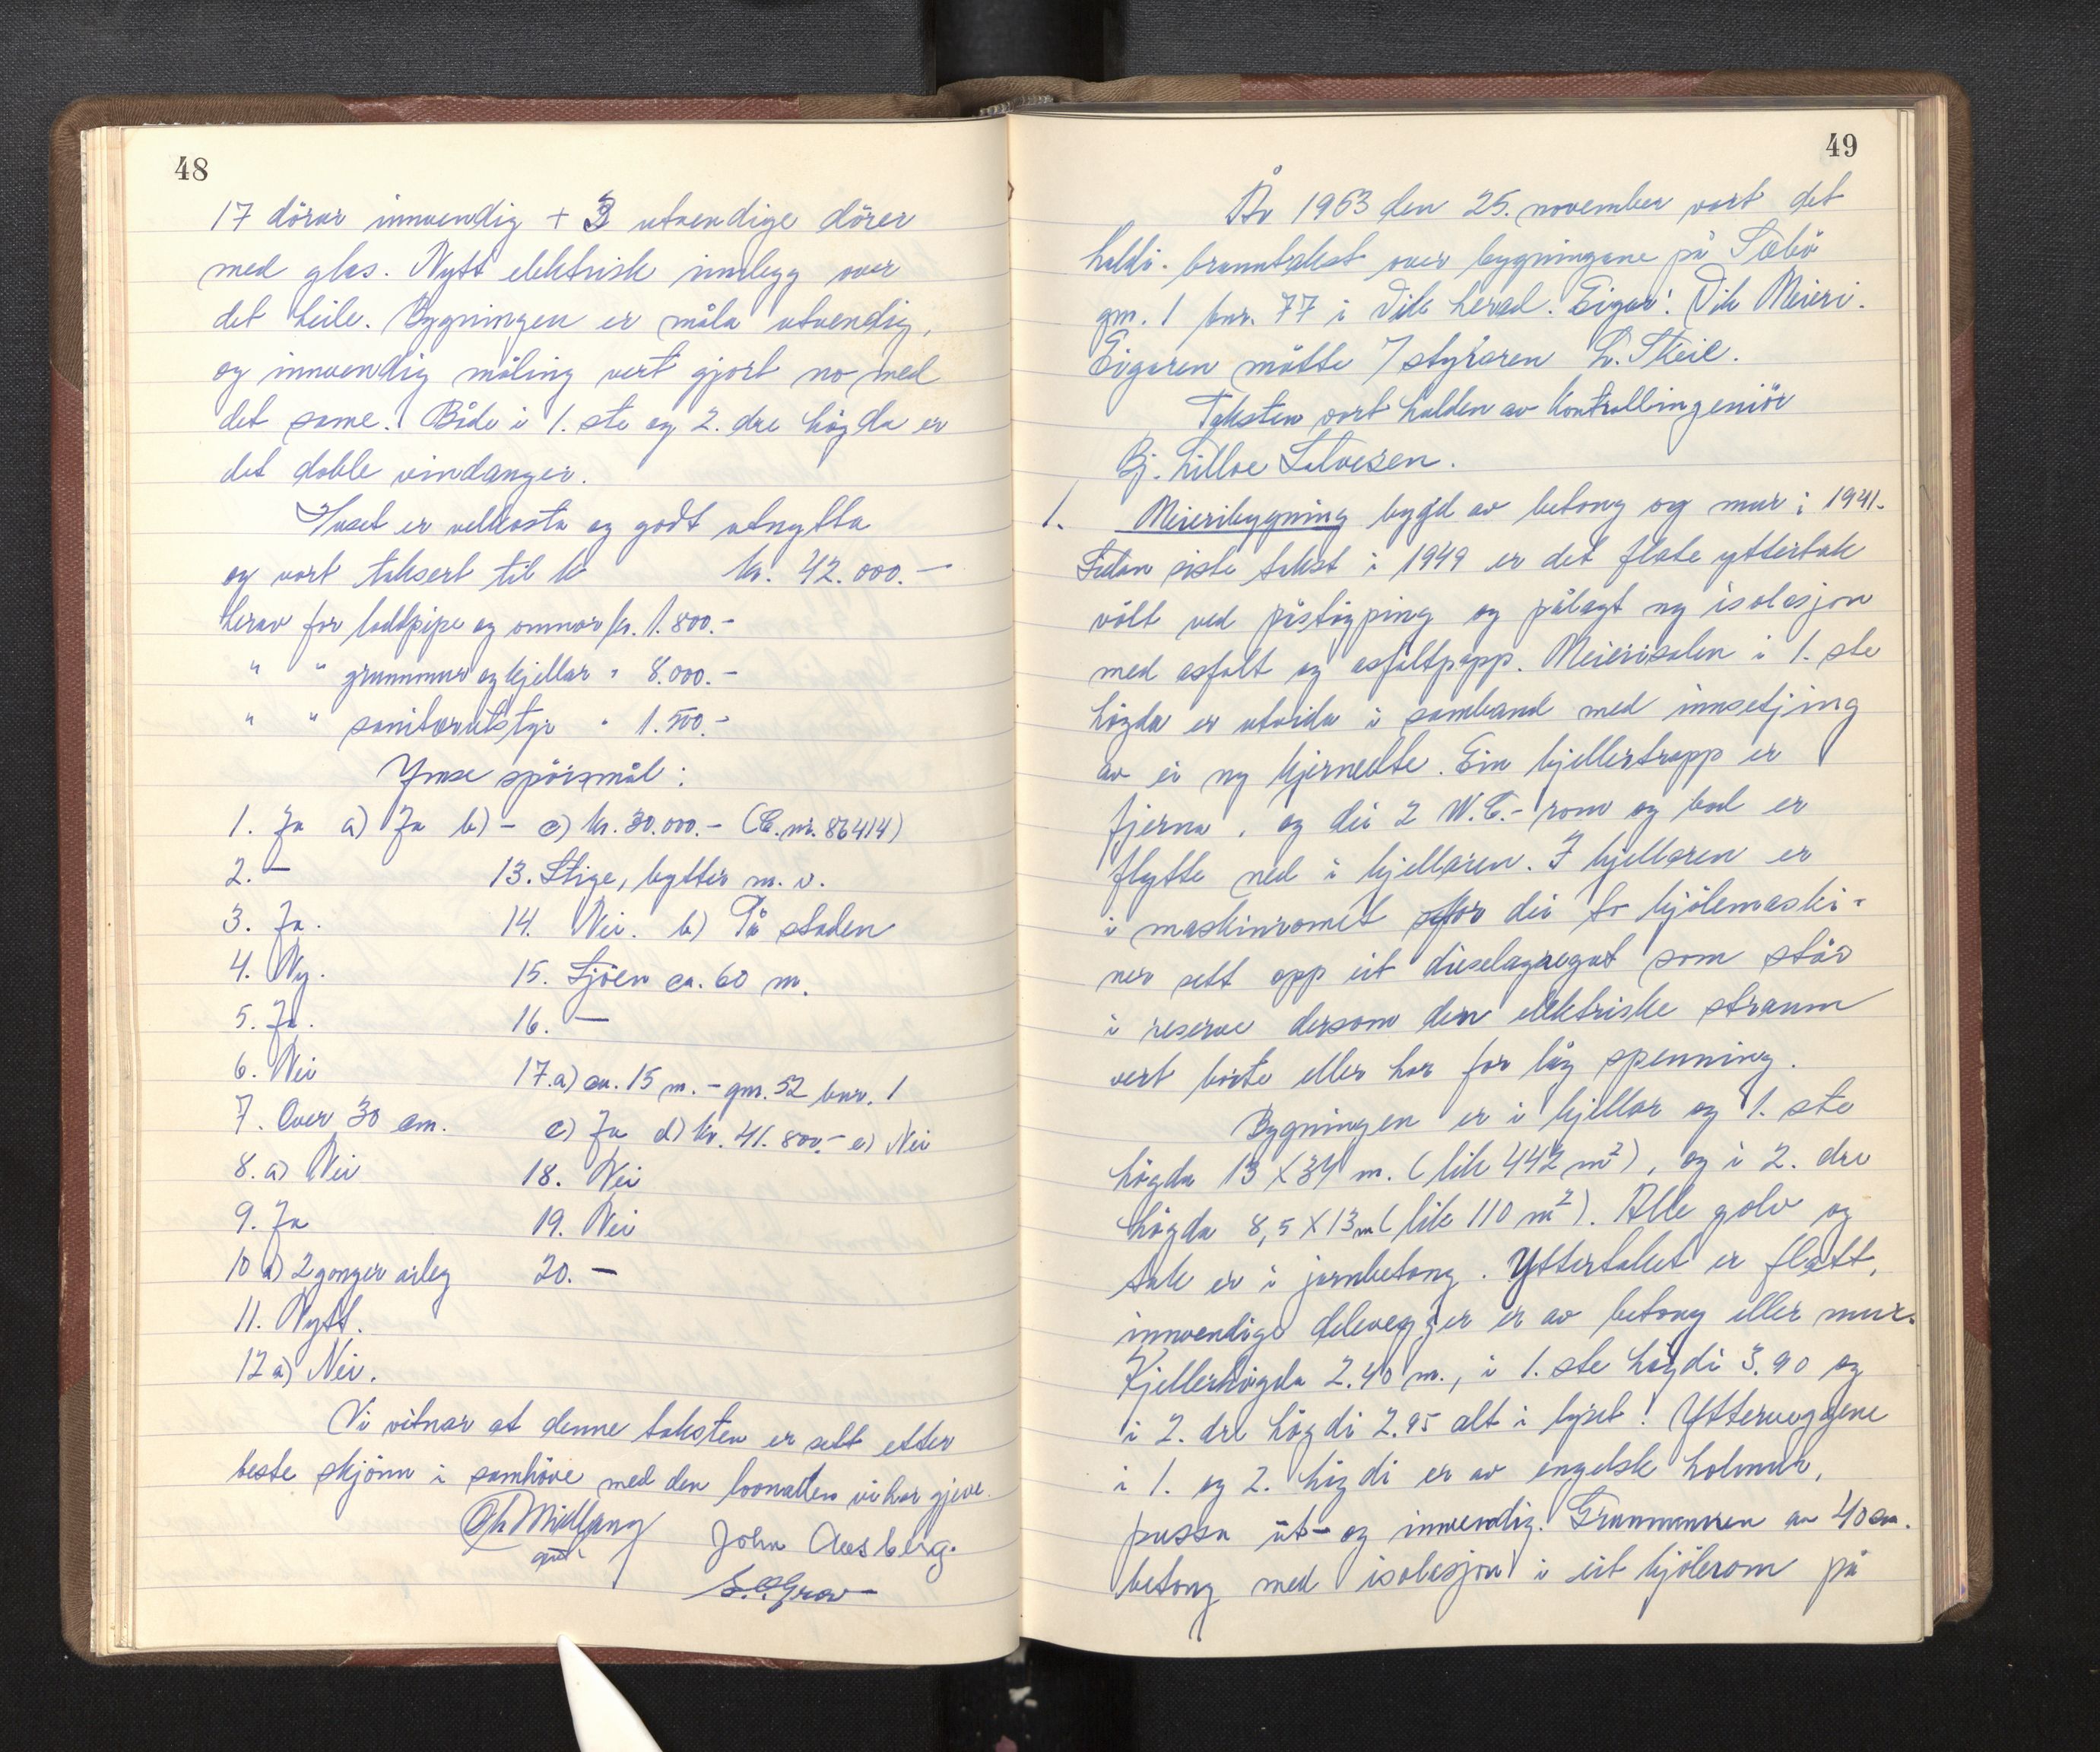 48
17 dörar innvendig + 3 utvendige dörer
med glas. Nytt elektrisk innlegg over
det heile. Bygningen er måla utvendig,
og innvendig måling vert gjort no med
det same. Både i 1. ste og 2. dre högda er
det doble vindauger.
Huset er velkosta og godt utnytta
og vart taksert til kr kr. 42.000.-
herav for loddpipe og omnar kr. 1.800.-
" " grunnmur og kjellar " 8.000.-
" " sanitærutstyr " 1.500.-
Ymse spörsmål:
1. Ja a) Ja b) - c) kr. 30.000.- (B.nr. 86414)
2. - 13. Stige, bytter m. v.
3. Ja. 14. Nei. b) På staden
4. Ny. 15. Sjöen ca. 60 m.
5. Ja. 16. -
6. Nei 17.a) ca. 15 m. - gnr. 52 bnr. 1
7. Over 30 cm. c) Ja d) kr. 41.800.- e) Nei
8. a) Nei 18. Nei
9. Ja 19. Nei
10 a) 2 gonger årleg 20. -
11. Nytt.
12 a) Nei.
Vi vitnar at denne taksten er sett etter
beste skjönn i samhöve med den lovnaden vi har gjeve.
John Aasberg.
49
År 1963 den 25. november vart det
haldi branntakst over bygningane på Sæbö
gnr. 1 bnr. 77 i Vik herad. Eigar: Vik Meieri.
Eigaren mötte v/styraren L. Skeie.
Taksten vart halden av Kontrollingeniör
Bj. Lilloe Salvesen.
1. Meieribygning bygd av betong og mur i 1941.
Sidan siste takst i 1949 er det flate yttertak
völt ved påstöyping og pålagt ny isolasjon
med asfalt og asfaltpapp. Meierisalen i 1. ste
högda er utvida i samband med innsetjing
av ei ny kjernelte. Ein kjellertrapp er
fjerna, og dei 2 W.C.-rom og bad er
flytte ned i kjellaren. I kjellaren er
i maskinromet for dei to kjölemaski-
ner sett opp eit dieselagregat som står
i reserve dersom den elektriske straum
vert borte eller har for låg spenning.
Bygningen er i kjellar og 1. ste
högda 13 X 34 m. (lik 442 m²), og i 2. dre
högda 8,5 X 13 m (lik 110 m²). Alle golv og
tak er i jarnbetong. Yttertaket er flatt,
innvendige delevegger er av betong eller mur.
Kjellerhögda 2.40 m., i 1. ste högdi 3.90 og
i 2. dre högdi 2.95 alt i lyset. Ytterveggene
i 1. og 2. högdi er av engelsk holmur,
pussa ut- og innvendig. Grunnmuren av 40 cm.
betong med isolasjon i eit kjölerom på